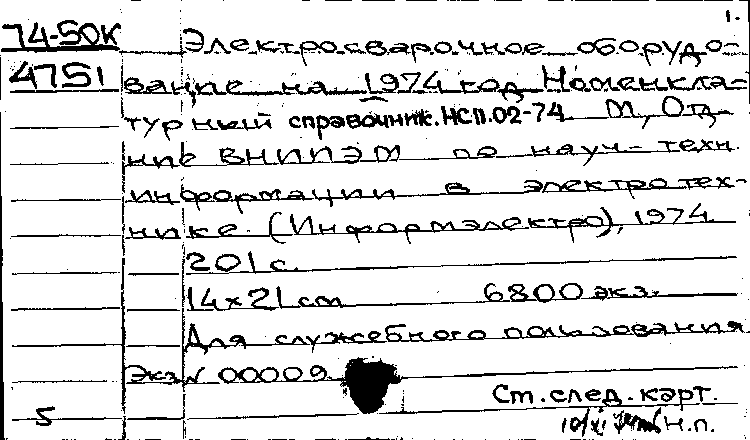 1.
74-50К Электросварочное оборудо-
4751 вание на 1974 год Номенкла-
турный справочник. НСП.02-74 М., Отд-
ние ВНИИЭМ по науч-техн.
информации в электротех-
нике. (Информэлектро), 1974
201 с.
14x21 cm 6800 экз.
Для служебного пользования
Экз № 00009
Cm. след. карт.
5 10/XI Н.п.